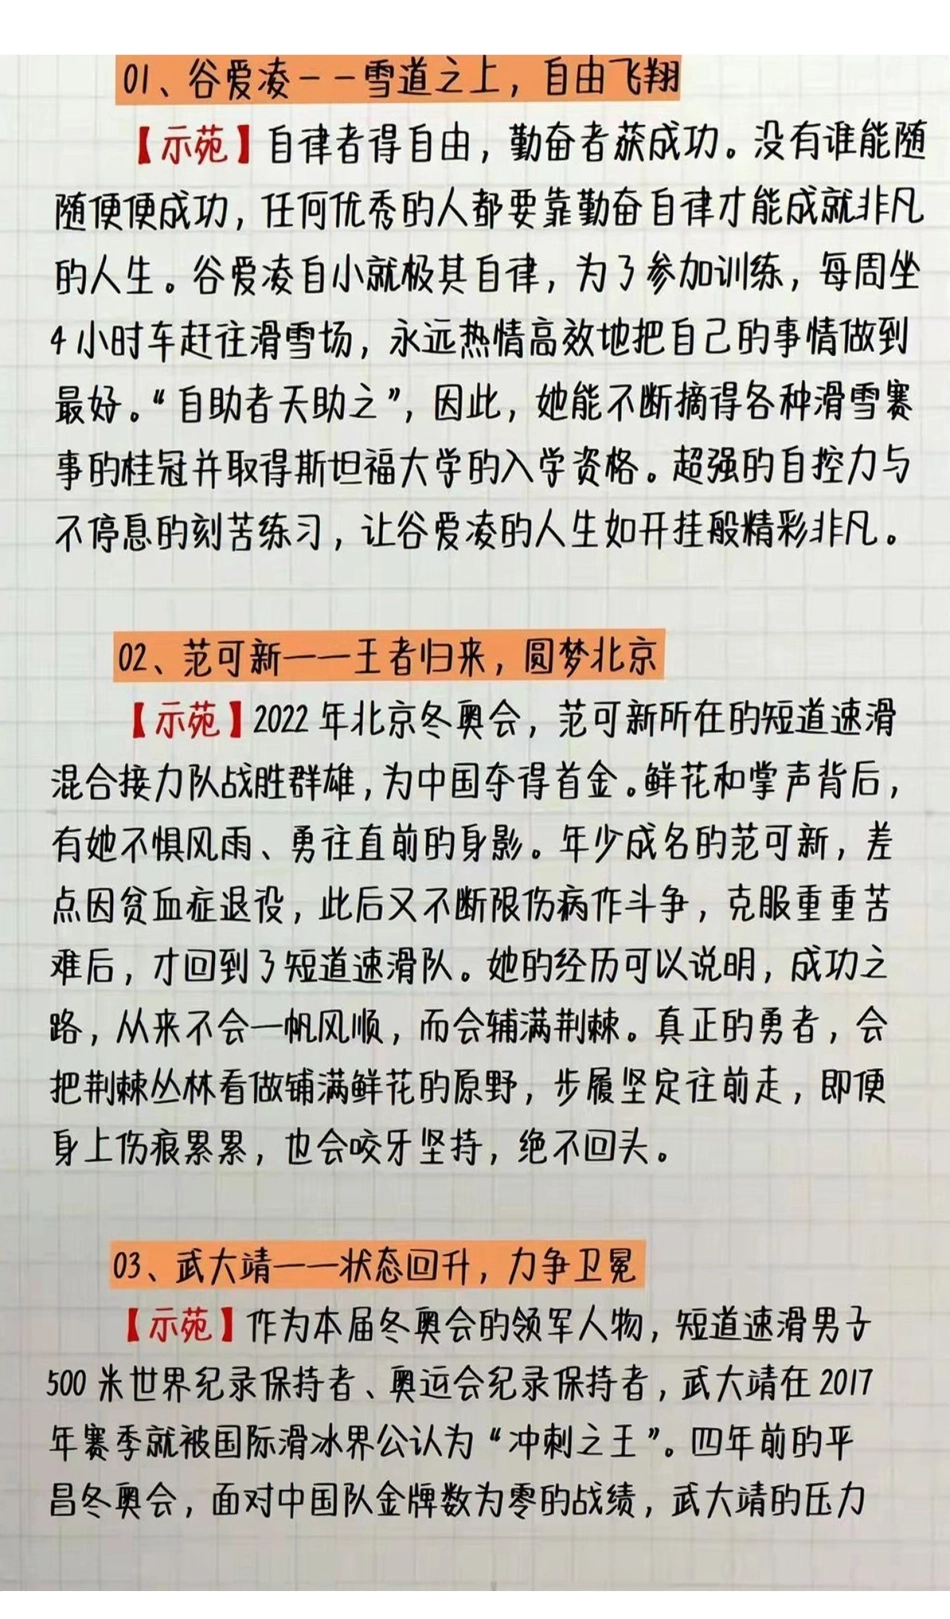 01、谷爱凌——雪道之上，自由飞翔
【示苑】自律者得自由，勤奋者获成功。没有谁能随
随便便成功，任何优秀的人都要靠勤奋自律才能成就非凡
的人生。谷爱凌自小就极其自律，为了参加训练，每周坐
4小时车赶往滑雪场，永远热情高效地把自己的事情做到
最好。“自助者天助之”，因此，她能不断摘得各种滑雪赛
事的桂冠并取得斯坦福大学的入学资格。超强的自控力与
不停息的刻苦练习，让谷爱凌的人生如开挂般精彩非凡。
02、范可新——王者归来，圆梦北京
【示苑】2022年北京冬奥会，范可新所在的短道速滑
混合接力队战胜群雄，为中国夺得首金。鲜花和掌声背后，
有她不惧风雨、勇往直前的身影。年少成名的范可新，差
点因贫血症退役，此后又不断跟伤病作斗争，克服重重苦
难后，才回到了短道速滑队。她的经历可以说明，成功之
路，从来不会一帆风顺，而会铺满荆棘。真正的勇者，会
把荆棘丛林看做铺满鲜花的原野，步履坚定往前走，即便
身上伤痕累累，也会咬牙坚持，绝不回头。
03、武大靖——状态回升，力争卫冕
【示苑】作为本届冬奥会的领军人物，短道速滑男子
500米世界纪录保持者、奥运会纪录保持者，武大靖在2017
年赛季就被国际滑冰界公认为“冲刺之王”。四年前的平
昌冬奥会，面对中国队金牌数为零的战绩，武大靖的压力